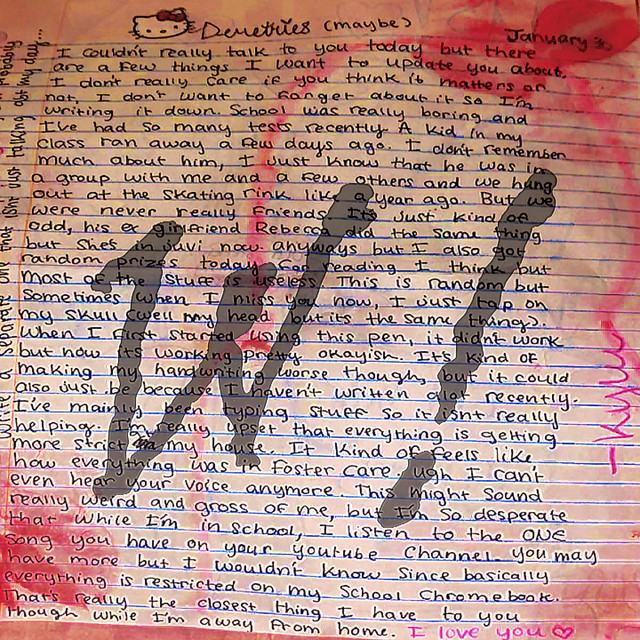 Demetries (maybe)
January 30
I couldn't really talk to you today but there
are a few things I want to update you about.
I don't really care if you think it matters or
not, I don't want to forget about it so I'm
writing it down. School was really boring and
I've had so many tests recently. A kid in my
class ran away a few days ago. I don't remember
much about him, I just know that he was in
a group with me and a few others and we hung
out at the skating rink like a year ago. But we
were never really friends. It's just kind of
odd, his ex girlfriend Rebecca did the same thing
but she's in juvi now. anyways but I also got
random prizes today for reading I think but
most of the stuff is useless. This is random but
sometimes when I miss you now, I just tap on
my skull (well my head but its the same thing).
When I first started using this pen, it didn't work
but now its working pretty okayish. It's kind of
making my handwriting worse though, but it could
also just be because I haven't written alot recently.
I've mainly been typing stuff so it isn't really
helping. I'm really upset that everything is getting
more strict my house. It kind of feels like
how everything was in foster care. ugh I can't
even hear your voice anymore. This might sound
really weird and gross of me, but I'm so desperate
that while I'm in school, I listen to the ONE
song you have on your youtube channel. you may
have more but I wouldn't know since basically
everything is restricted on my school chromebook.
That's really the closest thing I have to you
though while I'm away from home. I love you
write a separate one that isn't just talking abt my day...